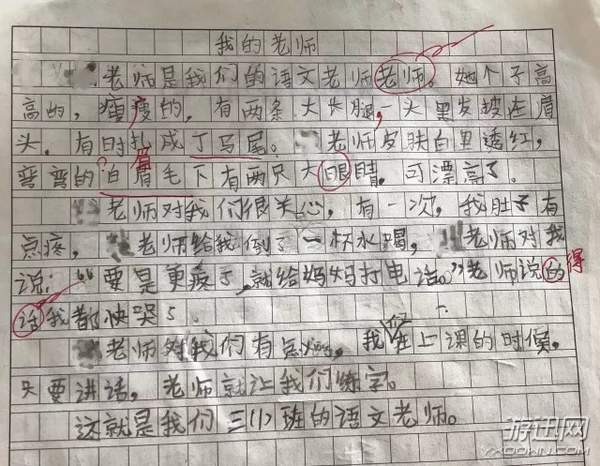 我的老师
老师是我们的语文老师老师。她个子高
高的，瘦瘦的，有两条大长腿，一头黑发披在眉
头，有时扎成丁马尾。老师皮肤白里透红，
弯弯的白眉毛下有两只大眼睛，可漂亮了。
眉
老师对我们很关心，有一次，我肚子有
点疼，老师给我倒了一杯水喝，老师对我
说：“要是更疼了，就给妈妈打电话。”老师说的
得
话我都快哭了。
老师对我们有，我们在上课的时候，
只要讲话，老师就让我们练字。
这就是我们三(1)班的语文老师。
游迅网
YXDOWN.COM